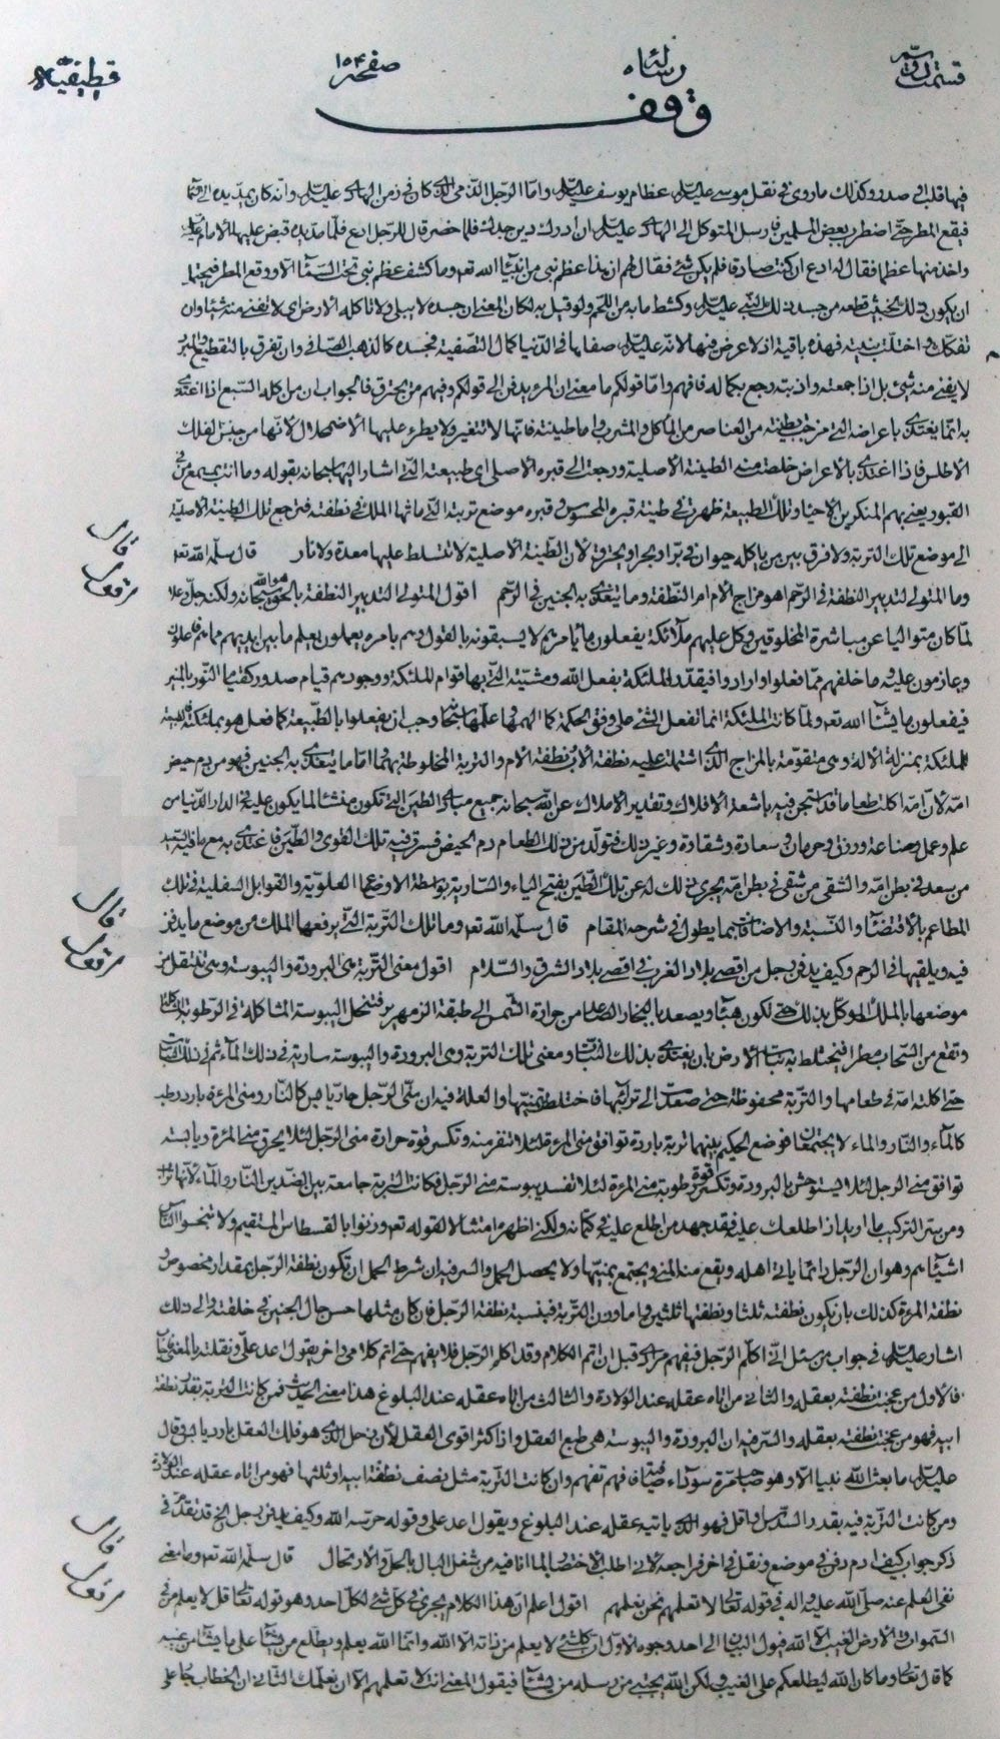 قسمت دوم رسالة صفحه ١٥٤ قطيفية
وقف
فيها قلب الى صدر وكذلك ما روى فى نقل موسى عليه السلام عظام يوسف عليه السلام واما الرجل الذمى الذى كان فى زمن الهادى عليه السلام وانه كان يمد يده الى السماء
فيقع المطر حتى اضطرب بعض المسلمين فارسل المتوكل الى الهادى عليه السلام ان ادرك دين جدك فلما حضر قال للرجل ادع فلما مد يده قبض عليها الامام عليه السلام
واخذ منها عظما فقال له ادع ان كنت صادقا فلم يكن شئ فقال لهم ان هذا عظم نبى من انبياء الله تعالى وما كشف عظم نبى تحت السماء الا ووقع المطر فيحتمل
ان يكون ذلك الخبيث قطعه من جسد ذلك النبى عليه السلام وكشط ما به من اللحم ولو قيل به لكان المعنى ان جسده لا يبلى ولا تاكله الارض اى لا تفنى منه شيئا وان
تفكك واختلف بنيته فهذه باقية اذ لا عرض فيها لانه عليه السلام صفاها فى الدنيا كمال التصفية فجسده كالذهب الصافى وان تفرق بالتقطيع والمبرد
لا يفنى منه شئ بل اذا جمعته واذبته رجع بكماله فافهم واما قولكم ما معنى ان المرء يدفن الى قولكم وفيهم من يحترق فالجواب ان من اكله السبع اذا اغتذى
به انما يغتذى باعراضه التى مزجت بطينته من العناصر من المآكل والمشرب واما طينته فانها لا تتغير ولا يطرء عليها الاضمحلال لانها من جنس الفلك
الاطلس فاذا اغتذى بالاعراض خلصت منه الطينة الاصلية ورجعت الى قبره الاصلى اى طبيعته التى اشار اليها سبحانه بقوله وما انت بمسمع من فى
القبور يعنى بهم المنكرين الاحياء وتلك الطبيعة ظهرت فى طينة قبره المحسوس فى قبره موضع تربته التى ماثها الملك فى نطفته فترجع تلك الطينة الاصلية
الى موضع تلك التربة ولا فرق بين من ياكله حيوان فى بر او بحر او يحترق لان الطينة الاصلية لا تتسلط عليها معدة ولا نار قال سلمه الله تعالى
وما المتولى لتدبير النطفة فى الرحم اهو مزاج الام ام النطفة وما يتغذى به الجنين فى الرحم اقول المتولى لتدبير النطفة بالحق هو الله سبحانه ولكنه جل وعلا
لما كان متعاليا عن مباشرة المخلوقين وكل عليهم ملائكة يفعلون ما يامرهم لا يسبقونه بالقول وهم بامره يعملون يعلم ما بين ايديهم مما هم فاعلون
وعازمون عليه وما خلفهم مما فعلوا او ارادوا فيقدر الملائكة بفعل الله ومشيته التى بها قوام الملئكة ووجودهم قيام صدور كقيام النور بالمنير
فيفعلون ما يشاء الله تعالى ولما كانت الملئكة انما تفعل الشئ على وفق الحكمة كما الهمها وعلمها سبحانه وجب ان يفعلوا بالطبيعة كما فعل هو بملئكته فالطبيعة
للملئكة بمنزلة الآلة وهى متقومة بالمزاج الذى اشتملت عليه نطفة الاب ونطفة الام والتربة المخلوطة بهما واما ما يتغذى به الجنين فهو من دم حيض
امه لان امه اكلت طعاما قد استجن فيه باشعة الافلاك وتقدير الاملاك عن الله سبحانه جميع مبادى الطين التى تكون منشئا لما يكون عليه فى الدار الدنيا من
علم وعمل وصناعة ورزق وحرمان وسعادة وشقاوة وغير ذلك فتولد من ذلك الطعام دم الحيض فسرت فيه تلك القوى والطين فاغتذى به مع ما فيه السعيد
من سعد فى بطن امه والشقى من شقى فى بطن امه يجرى ذلك له عن تلك الطين بفتح الياء والسارية بواسطة الاوضاع العلوية والقوابل السفلية فى تلك
المطاعم بالاقتضاء والنسبة والاضافات مما يطول فى شرحه المقام قال سلمه الله تعالى وما تلك التربة التى يرفعها الملك من موضع ما يدفن
فيه ويلقيها فى الرحم وكيف يدفن رجل من اقصى بلاد الغرب فى اقصى بلاد الشرق والسلام اقول معنى التربة هى البرودة واليبوسة وهى تنتقل من
موضعها بالملك الموكل بذلك حتى تكون هباء ويصعد بالبخار الصاعد من حرارة الشمس الى طبقة الزمهرير فتنحل اليبوسة المشاكلة فى الرطوبة
وتقع من السحاب مطرا فيختلط به نبات الارض بان يغتذى بذلك النبات ومعنى تلك التربة وهى البرودة واليبوسة سارية فى ذلك الماء ثم فى ذلك النبات
حتى اكلته امه فى طعامها والتربة محفوظة حتى صعدت الى ترائبها فاختلط بمنيتها والعلة فيه ان منى الرجل حار يابس كالنار ومنى المرءة بارد رطب
كالماء والنار والماء لا يجتمعان فوضع الحكيم بينهما تربة باردة توافق منى المرءة لئلا تنفر منه وتكسر قوة حرارة منى الرجل لئلا يحرق منى المرءة ويابسته
توافق منى الرجل لئلا يستوحش بالبرودة وتكسر قوة رطوبة منى المرءة لئلا تفسد يبوسة منى الرجل فكانت التربة جامعة بين الضدين النار والماء لانها تراب
ومن سر التركيب ما اريد ان اطلعك عليه فقد جهد من اطلع عليه فى كتمانه ولكنى اظهره امتثالا لقوله تعالى وزنوا بالقسطاس المستقيم ولا تبخسوا الناس
اشياءهم وهو ان الرجل دائما ياتى اهله ويقع منه المنى ويجتمع بمنيها ولا يحصل الحمل والسر فيه ان شرط الحمل ان تكون نطفة الرجل بمقدار مخصوص و
نطفة المرءة كذلك بان يكون نطفته ثلثا ونطفتها ثلثين واما وزن التربة فبنسبة نطفة الرجل فان كان مثلها حسن حال الجنين فى خلقته والى ذلك
اشار عليه السلام فى جواب من سئل انى اكلم الرجل فيفهم مرادى قبل ان اتم الكلام وقد اكلم الرجل فلا يفهم حتى اتم كلامى واخر يقول اعد على ونقلته بالمعنى
فالاول من عجنت نطفته بعقله والثانى من اتاه عقله عند الولادة والثالث من اتاه عقله عند البلوغ هذا معنى الحديث فمن كانت التربة بقدر نطفة
ابيه فهو من عجنت نطفته بعقله والسر فيه ان البرودة واليبوسة هى طبع العقل واذا كثرا قوى العقل لان زحل الذى هو فلك العقل بارد يابس قال
عليه السلام ما بعث الله نبيا الا وهو صاحب مرة سوداء صافية فافهم تفهم وان كانت التربة مثل نصف نطفة ابيه او ثلثها فهو من اتاه عقله عند الولادة
ومن كانت التربة فيه بقدر السدس او اقل فهو الذى ياتيه عقله عند البلوغ ويقول اعد على وقوله حرسه الله وكيف يدفن رجل الخ قد تقدم فى
ذكر جواب كيف ادم دفن فى موضع ونقل فى اخر فراجعه لانى اطلب الاختصار لما انا فيه من شغل البال بالحل والارتحال قال سلمه الله تعالى وما معنى
نفى العلم عنه صلى الله عليه واله فى قوله تعالى لا تعلمهم نحن نعلمهم اقول اعلم ان هذا الكلام يجرى فى كل شئ لكل احد وهو قوله تعالى قل لا يعلم من فى
السموات والارض الغيب الا الله فيؤل البيان الى احد وجوه الاول ان كل شئ لا يعلم من ذاته الا الله وانما الله يعلم ويطلع من يشاء على ما يشاء من غيبه
كما قال تعالى وما كان الله ليطلعكم على الغيب ولكن الله يجتبى من رسله من يشاء فيقول المعنى انك لا تعلمهم الا ان نعلمك الثانى ان الخطاب جار على
قال
مرقوم
قال
مرقوم
قال
مرقوم